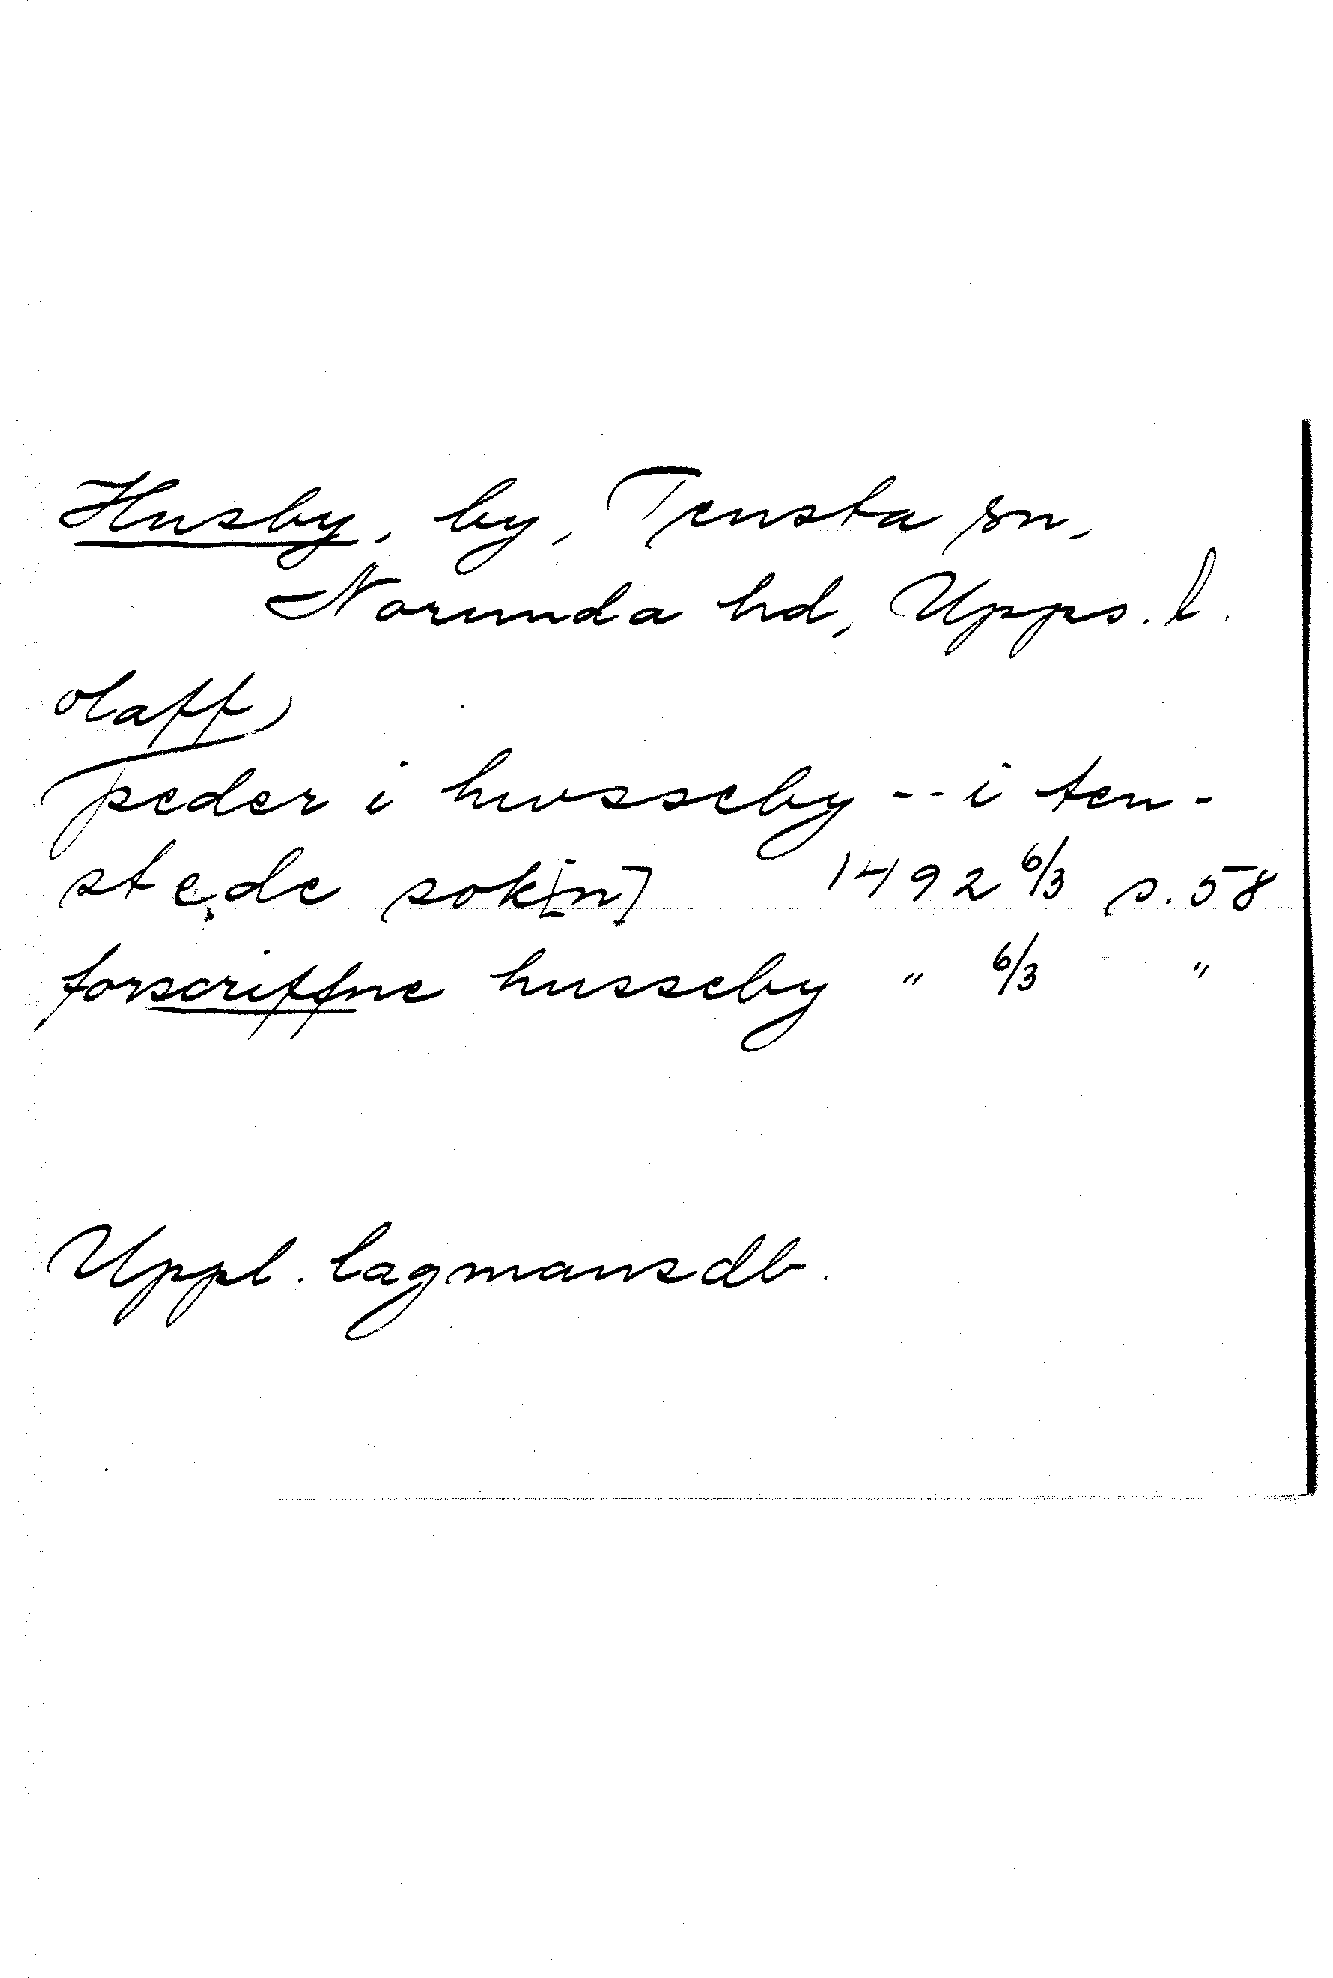 Husby, by, Tensta sn,
Norunda hd, Upps. l.
olaff
peder i hwsseby -- i ten-
stęde sok[n] 1492 6/3 s. 58
forscriffne husseby " 6/3 "
Uppl. lagmansdb.